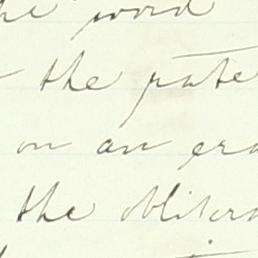 the word
the rate
on an era
the oblitera